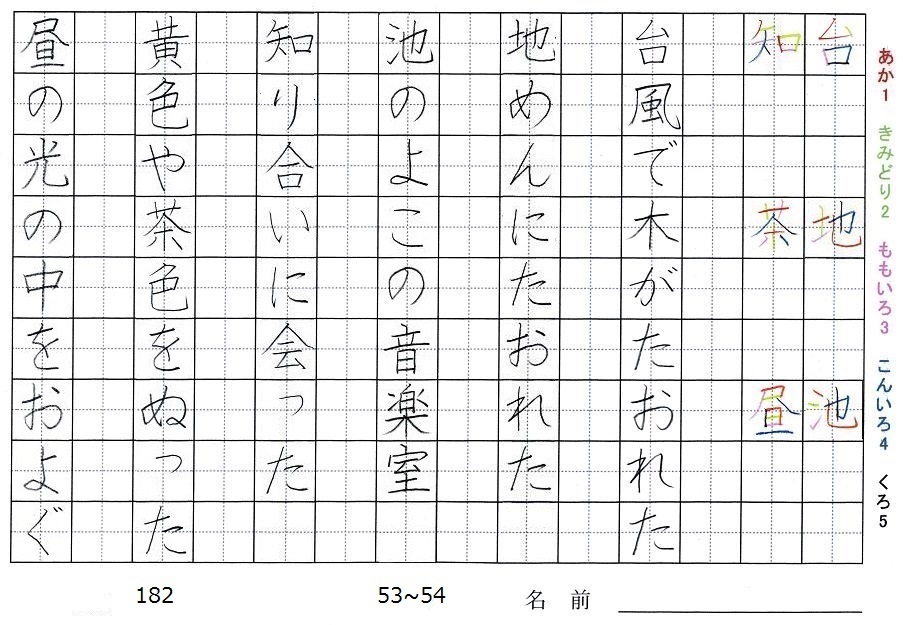 あか1 きみどり2 ももいろ3 こんいろ4 くろ5
台 地 池
知 茶 昼
台風で木がたおれた
地めんにたおれた
池のよこの音楽室
知り合いに会った
黄色や茶色をぬった
昼の光の中をおよぐ
182
53~54
名 前